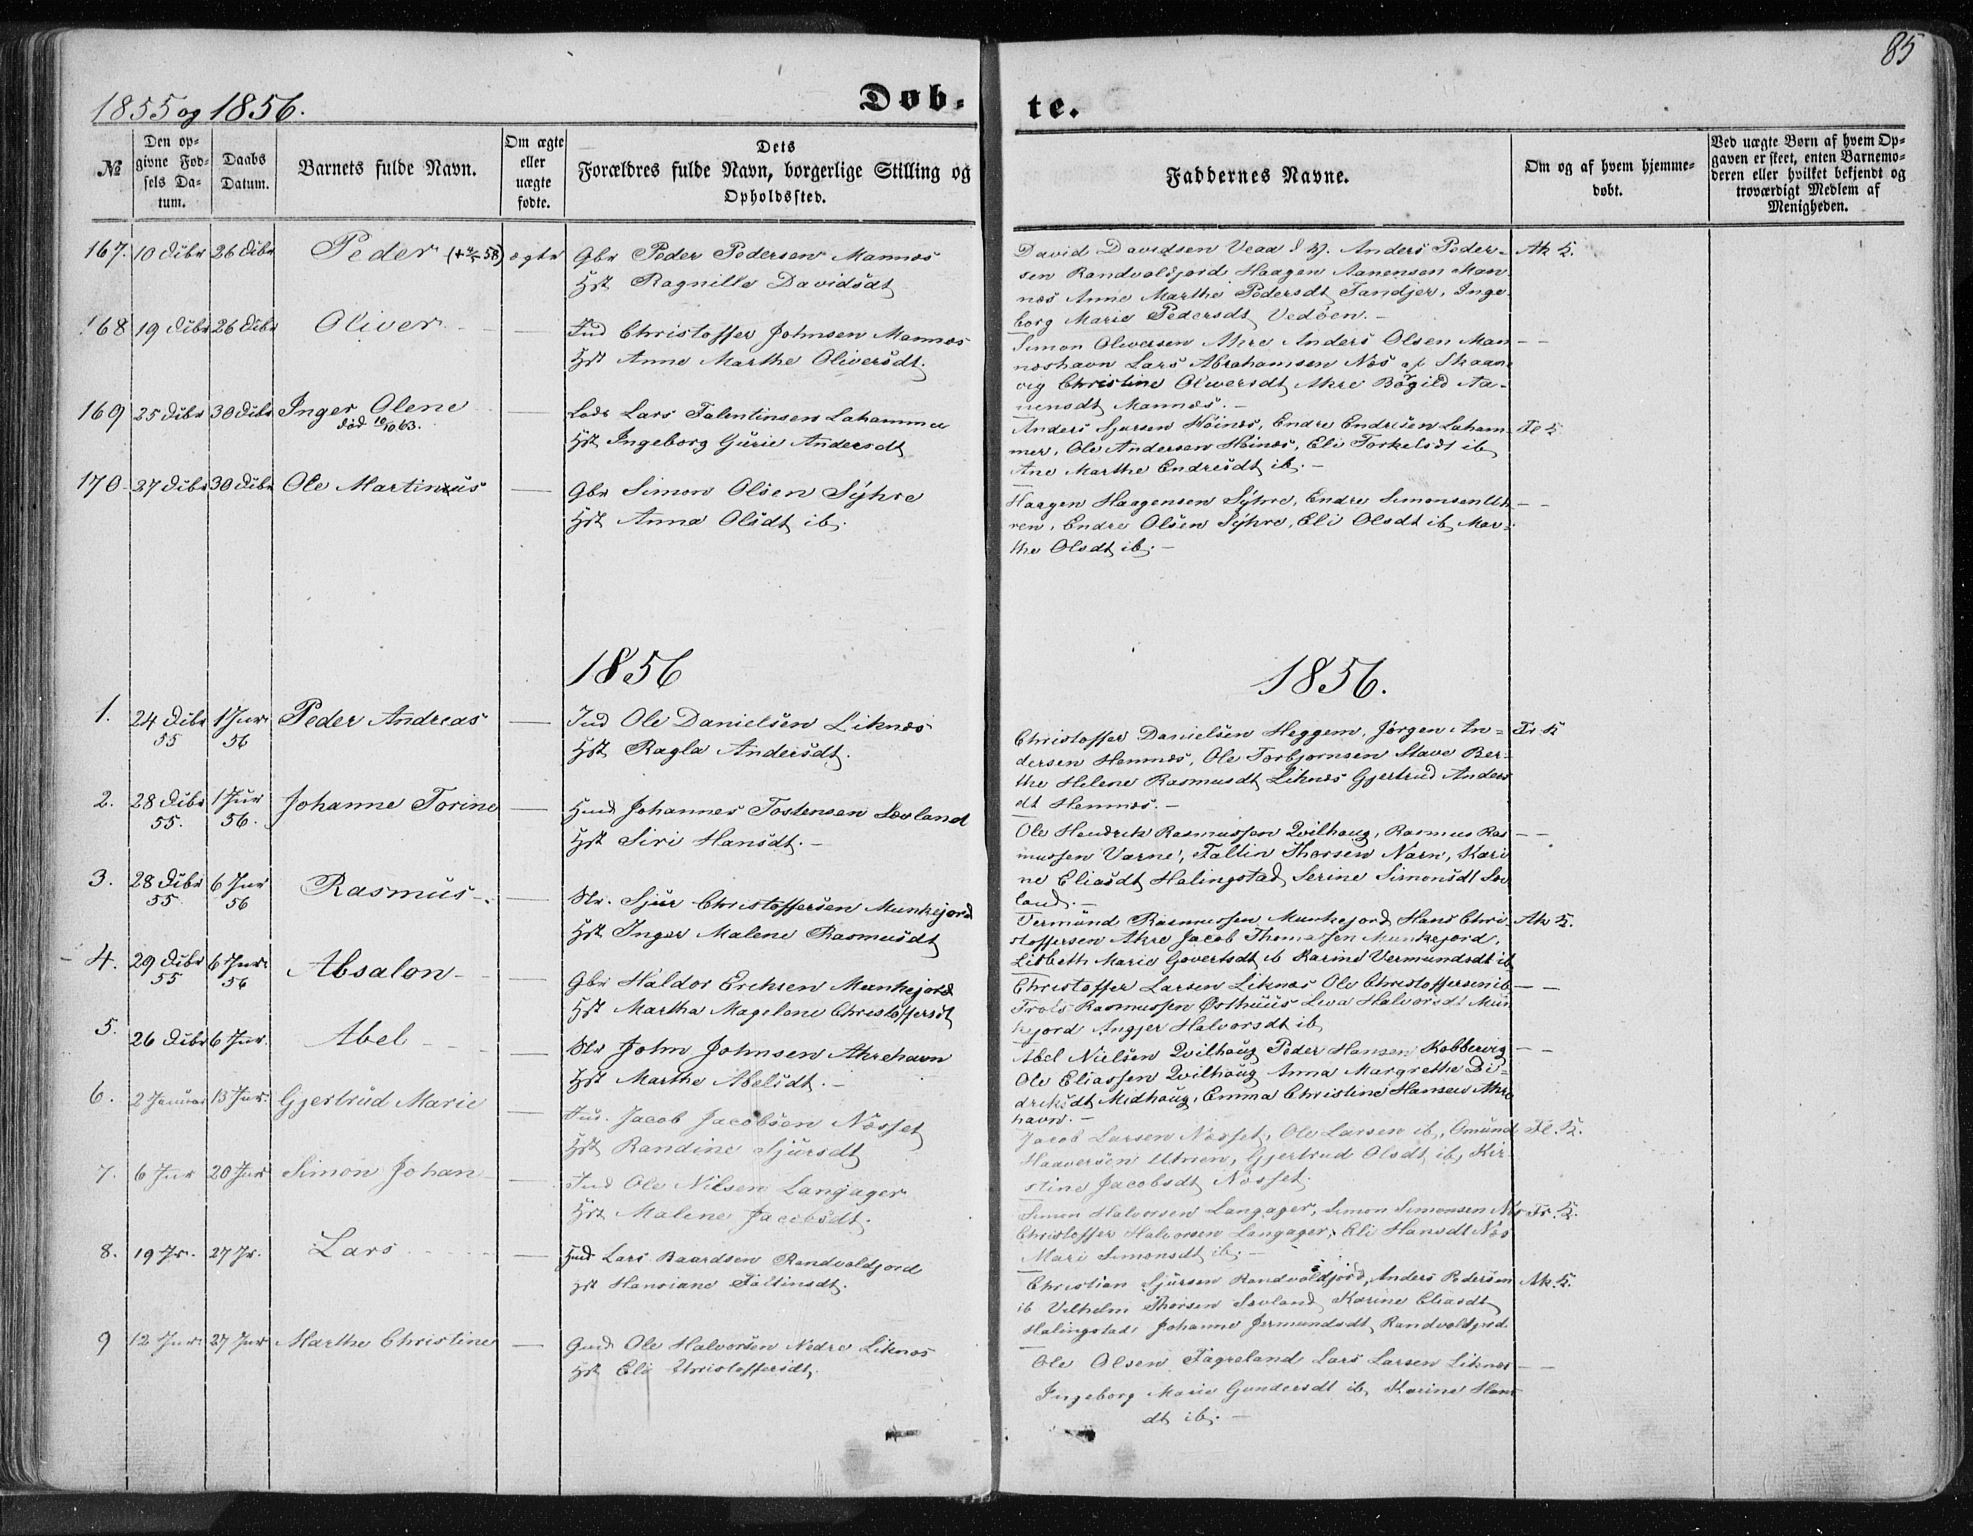 85
1855 og 1856.
Døb-
te.
№
Den op-
givne Fød-
sels Da-
tum.
Daabs
Datum.
Barnets fulde Navn.
Om ægte
eller
uægte
fødte.
Dets
Forældres fulde Navn, borgerlige Stilling og
Opholdssted.
Faddernes Navne.
Om og af hvem hjemme-
døbt.
Ved uægte Børn af hvem Op-
gaven er skeet, enten Barnemo-
deren eller hvilket bekjendt og
troværdigt Medlem af
Menigheden.
167. 10 Dcbr 26 Dcbr Peder ægte Gbr Peder Pedersen Mannes
Hst Ragnille Davidsdt
David Davidsen Veaa Anders Peder- Ak K.
sen Randvoldjord Haagen Aanensen Man-
nes Anne Marthe Pedersdt Tandjer, Inge-
borg Marie Pedersdt Vedøen. —
168 19 Dcbr 26 Dcbr Oliver — Ind Christoffer Johnsen Mannes
Hst Anne Marthe Oliversdt.
Simon Oliversen Akre Anders Olsen Man- — —
neshavn Lars Abrahamsen Næs af Skaane-
vig Christine Oliversdt Akre Børgild Aa-
nensdt Mannes. —
169 25 Dcbr 30 Dcbr Inger Olene — Lars Falentinsen Lahammer
død 10/10 63.
Hst Ingeborg Gurie Andersdt
Anders Sjursen Høines, Endre Endresen Laham- Fl K
mer, Ole Andersen Høines, Eli Torkelsdt ib
Ane Marthe Endresdt ib. —
170 27 Dcbr 30 Dcbr Ole Martinius — Gbr Simon Olsen Syhre
Hst Anna Olsdt ib.
Haagen Haagensen Syhre, Endre Simonsen Ut- — —
ren, Endre Olsen Syhre, Eli Olsdt ib, Mar-
the Olsdt ib. —
1856
1856.
1. 24 Dcbr 55 1 Jnr 56 Peder Andreas — Ind Ole Danielsen Liknes
Hst Ragla Andersdt.
Christoffer Danielsen Heggem, Jørgen An- Fr K
dersen Hemnes, Ole Torbjørnsen Stave Ber-
the Helene Rasmusdt Liknes Gjertrud Anders
dt Hemnes. —
2. 28 Dcbr 55. 1 Jnr 56. Johanne Torine — Hmd Johannes Tostensen Sevland
Hst Siri Hansdt. —
Ole Hendrik Rasmussen Qvilhaug, Rasmus Ras- — —
mussen Varne, Faltin Thorsen Varn, Kari-
ne Eliasdt Halingstad, Serine Simonsdt Sev-
land. —
3. 28 Dcbr 55 6 Jnr 56 Rasmus — Str. Sjur Christoffersen Munkejord
Hst Inger Malene Rasmusdt
Vermund Rasmussen Munkejord Hans Chri- Ak K.
stoffersen Akre Jacob Thomassen Munkejord.
Lisbeth Marie Govertsdt ib Karine Vermundsdt ib
4. 29 Dcbr 55 6 Jnr 56 Absalon — Gbr Haldor Erichsen Munkejord
Hst Martha Magelone Christoffersdt
Christoffer Larsen Liknes Ole Christoffersen ib — —
Trols Rasmussen Østhuus Lewa Halvorsdt Mun
kejord Angjer Halvorsdt ib
5. 26 Dcbr 6 Jnr Abel — Str John Johnsen Akrehavn
Hst Marthe Abelsdt. —
Abel Nielsen Qvilhaug Peder Hansen Kobbervig — —
Ole Eliassen Qvilhaug Anna Margrethe Di-
driksdt Midhaug, Emma Christine Hansen Akre
havn. —
6. 2 Januar 13 Jnr. Gjertrud Marie — Ind. Jacob Jacobsen Nesset
Hst Randine Sjursdt
Jacob Larsen Nesset, Ole Larsen ib, Omund Fl. K.
Haaversen Utvien, Gjertrud Olsdt ib, Kir-
stine Jacobsdt Nesset.
7. 6 Jnr 20 Jnr Simon Johan — Ind Ole Nilsen Langager
Hst Malene Jacobsdt.
Simon Halvorsen Langager, Simon Simonsen Nes Fr. K.
Christoffer Halvorsen Langager, Eli Hansdt Nes
Mari Simonsdt ib. —
8. 19 Jr. 27 Jr. Lars — Hmd Lars Baardsen Randvoldjord
Hst Hansiane Faltinsdt.
Christian Sjursen Randvoldjord, Anders Pedersen Ak. K.
ib Vilhelm Thorsen Sevland Karine Eliasdt
Halingstad Johanne Jermundsdt Randvoldjord.
9 12 Jnr. 27 Jnr Marthe Christine — Gmd Ole Halvorsen Nedre Liknes
Hst Eli Christoffersdt.
Ole Olsen Fagreland Lars Larsen Liknes — —
Ingeborg Marie Gundersdt ib, Karine Hans
dt ib. —